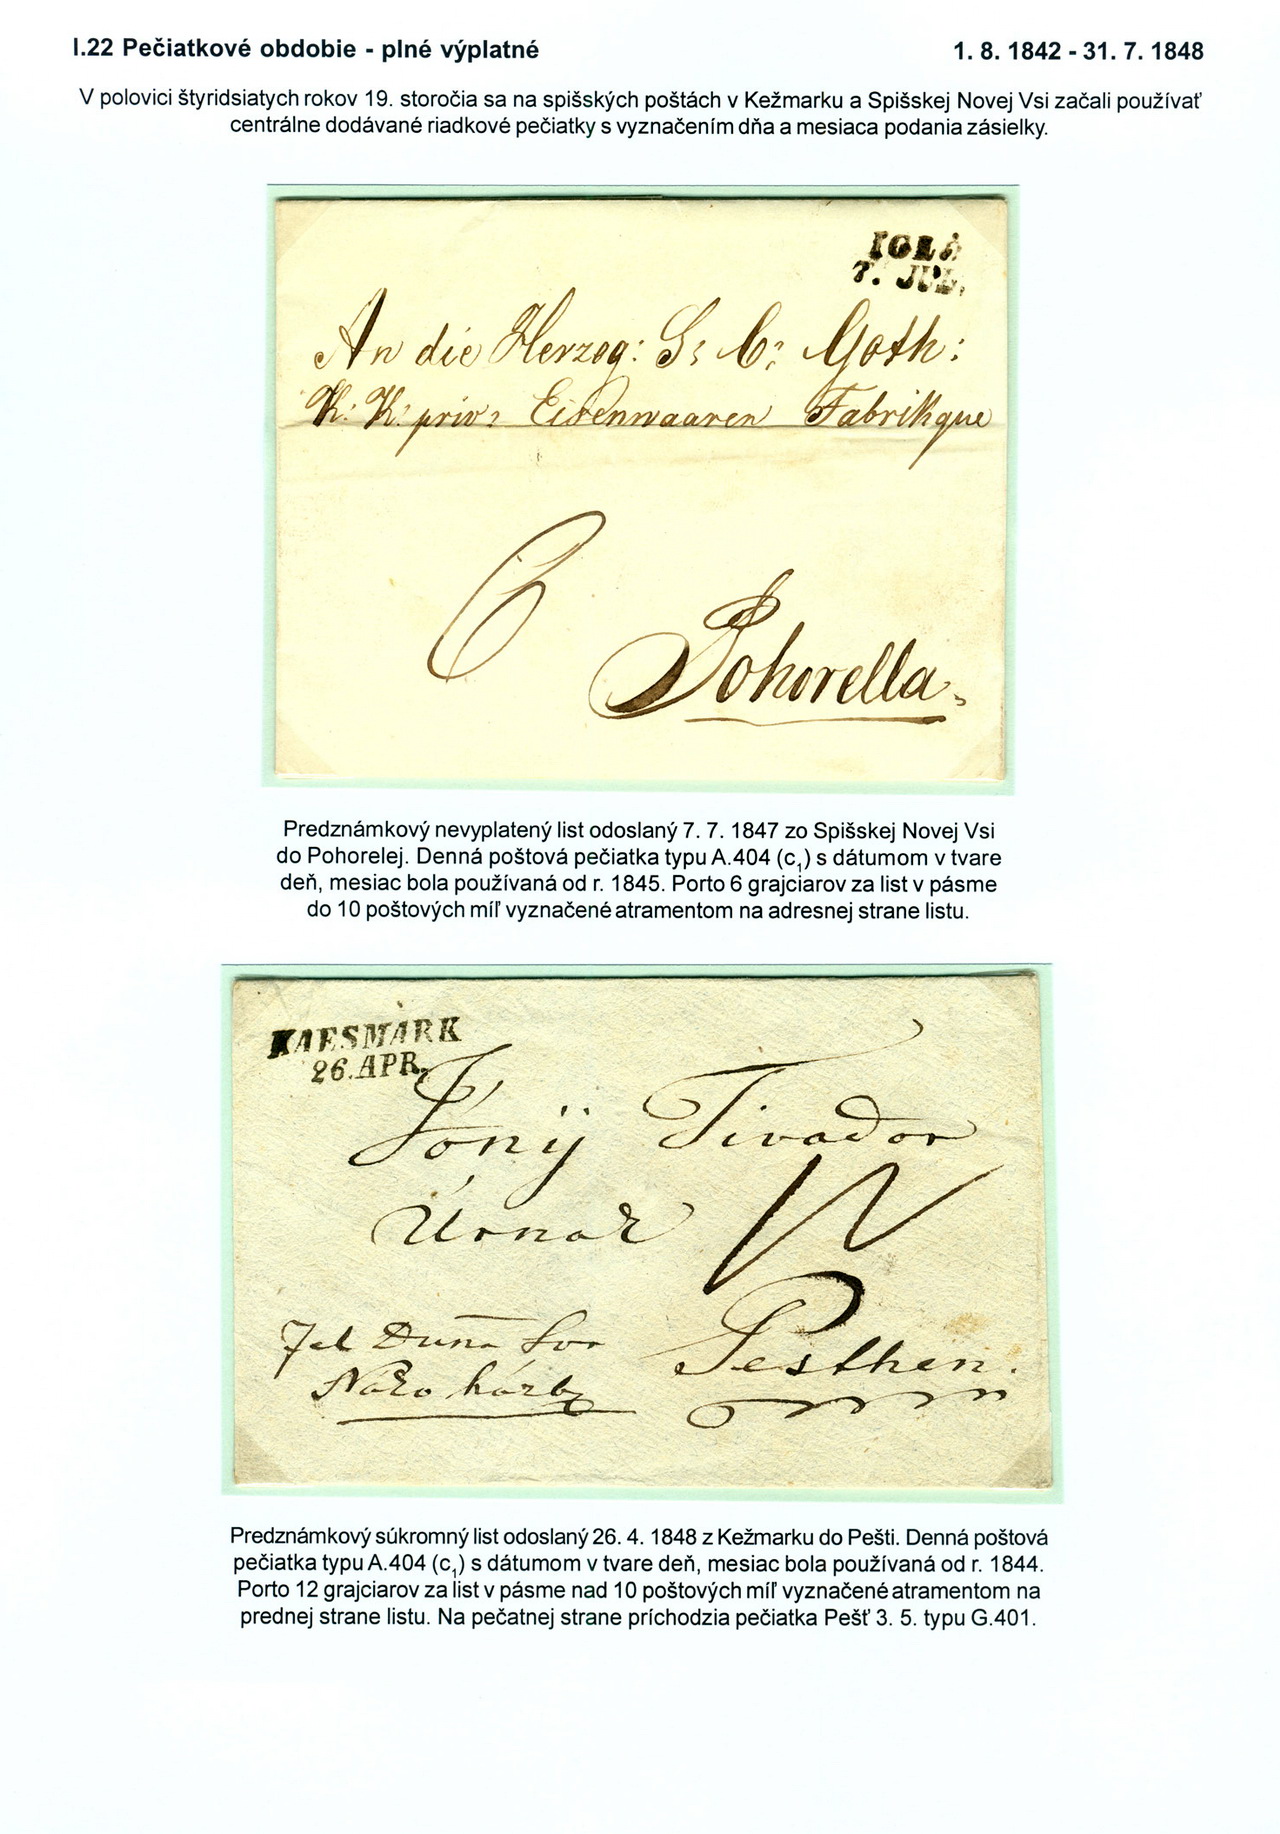 I.22 Pečiatkové obdobie - plné výplatné
1. 8. 1842 - 31. 7. 1848
V polovici štyridsiatych rokov 19. storočia sa na spišských poštách v Kežmarku a Spišskej Novej Vsi začali používať
centrálne dodávané riadkové pečiatky s vyznačením dňa a mesiaca podania zásielky.
IGLÓ
7. JUL.
An die Herzog: S: C: Goth:
K: K: priv: Eisenwaaren Fabrikque
6
Pohorella
Predznámkový nevyplatený list odoslaný 7. 7. 1847 zo Spišskej Novej Vsi
do Pohorelej. Denná poštová pečiatka typu A.404 (c₁) s dátumom v tvare
deň, mesiac bola používaná od r. 1845. Porto 6 grajciarov za list v pásme
do 10 poštových míľ vyznačené atramentom na adresnej strane listu.
KAESMARK
26. APR.
Tivador
Úrnak
Pesthen.
Predznámkový súkromný list odoslaný 26. 4. 1848 z Kežmarku do Pešti. Denná poštová
pečiatka typu A.404 (c₁) s dátumom v tvare deň, mesiac bola používaná od r. 1844.
Porto 12 grajciarov za list v pásme nad 10 poštových míľ vyznačené atramentom na
prednej strane listu. Na pečatnej strane príchodzia pečiatka Pešť 3. 5. typu G.401.